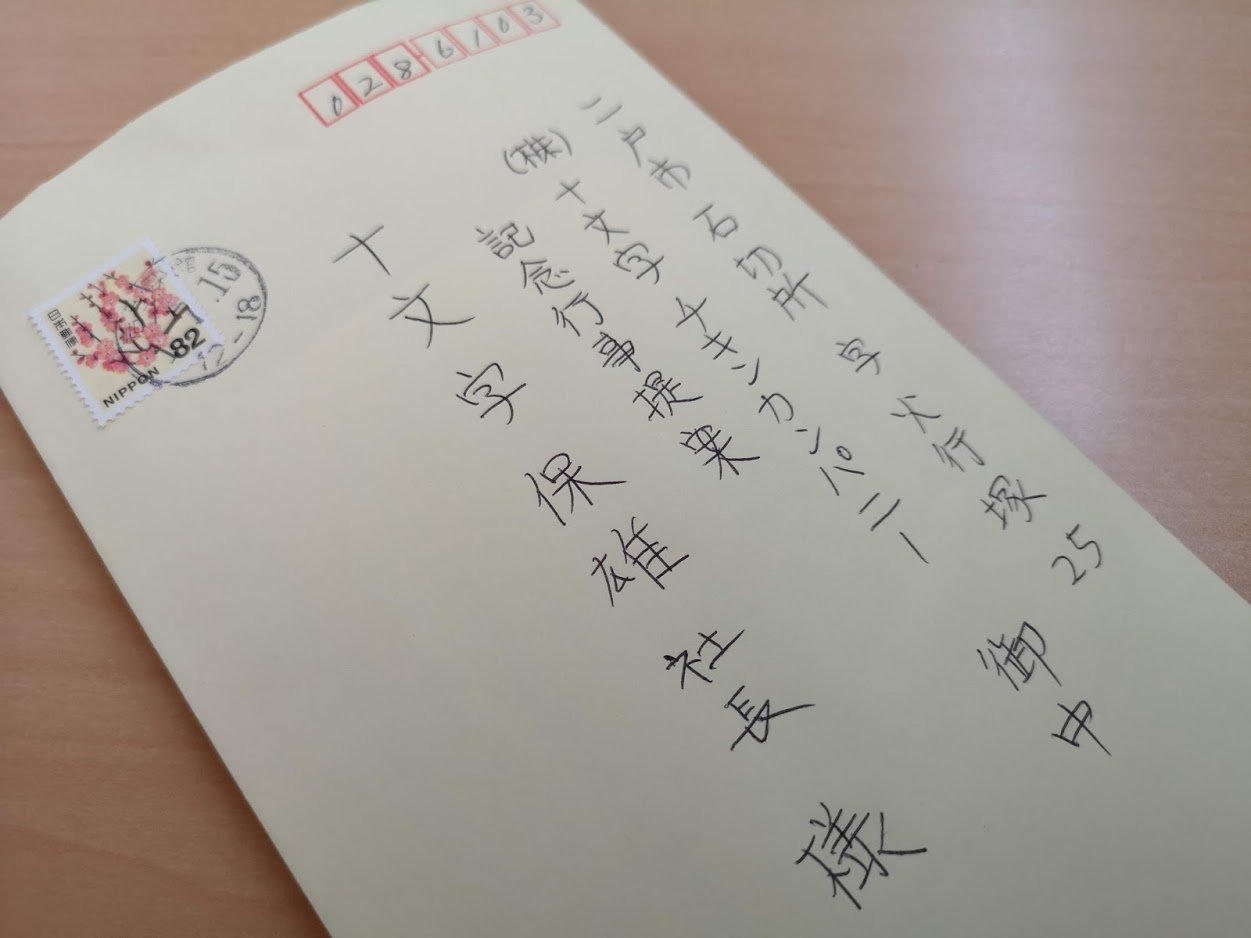 0286103
二戸市石切所字火行塚25
(株)十文字チキンカンパニー御中
記念行事提案
十文字保雄社長様
日本郵便
82
NIPPON
15
12-18